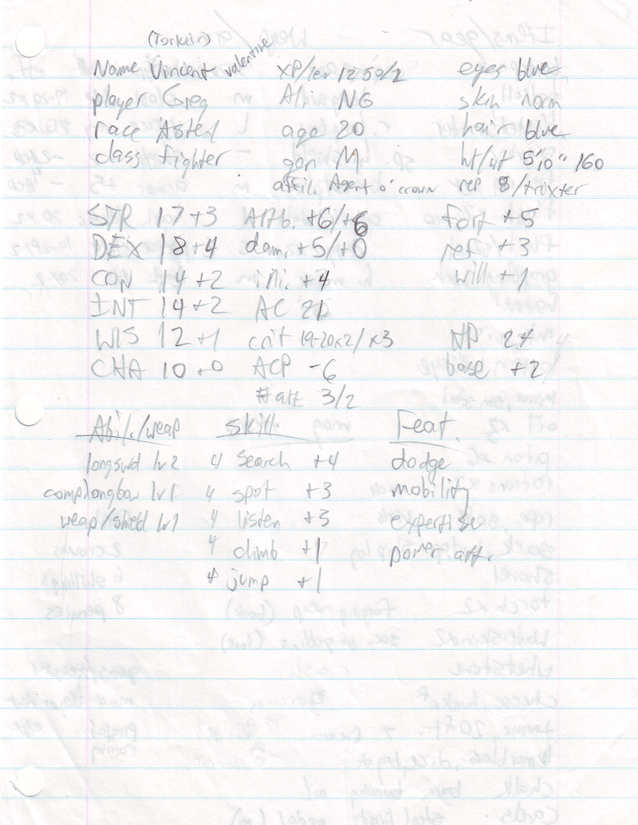 (Torkein)
Name Vincent valentine xp/lev 1250/2 eyes blue
player Greg Align NG skin norm
race Asted age 20 hair blue
class fighter gen M ht/wt 5'10" 160
affil. Agent o' crown rep 8/trixter
STR 17 +3 Attb. +6/+6 fort +5
DEX 18 +4 dam. +5/+0 ref +3
CON 14 +2 +4 will +1
INT 14 +2 AC 21
WIS 12 +1 crit 19-20x2/x3 HP 24
CHA 10 +0 ACP -6 base +2
# att 3/2
Abil./weap skill Feat.
longswd lv2 4 search +4 dodge
complongbow lv1 4 spot +3 mobility
weap/shield lv1 4 listen +3 expertise
4 climb +1 power att.
4 jump +1